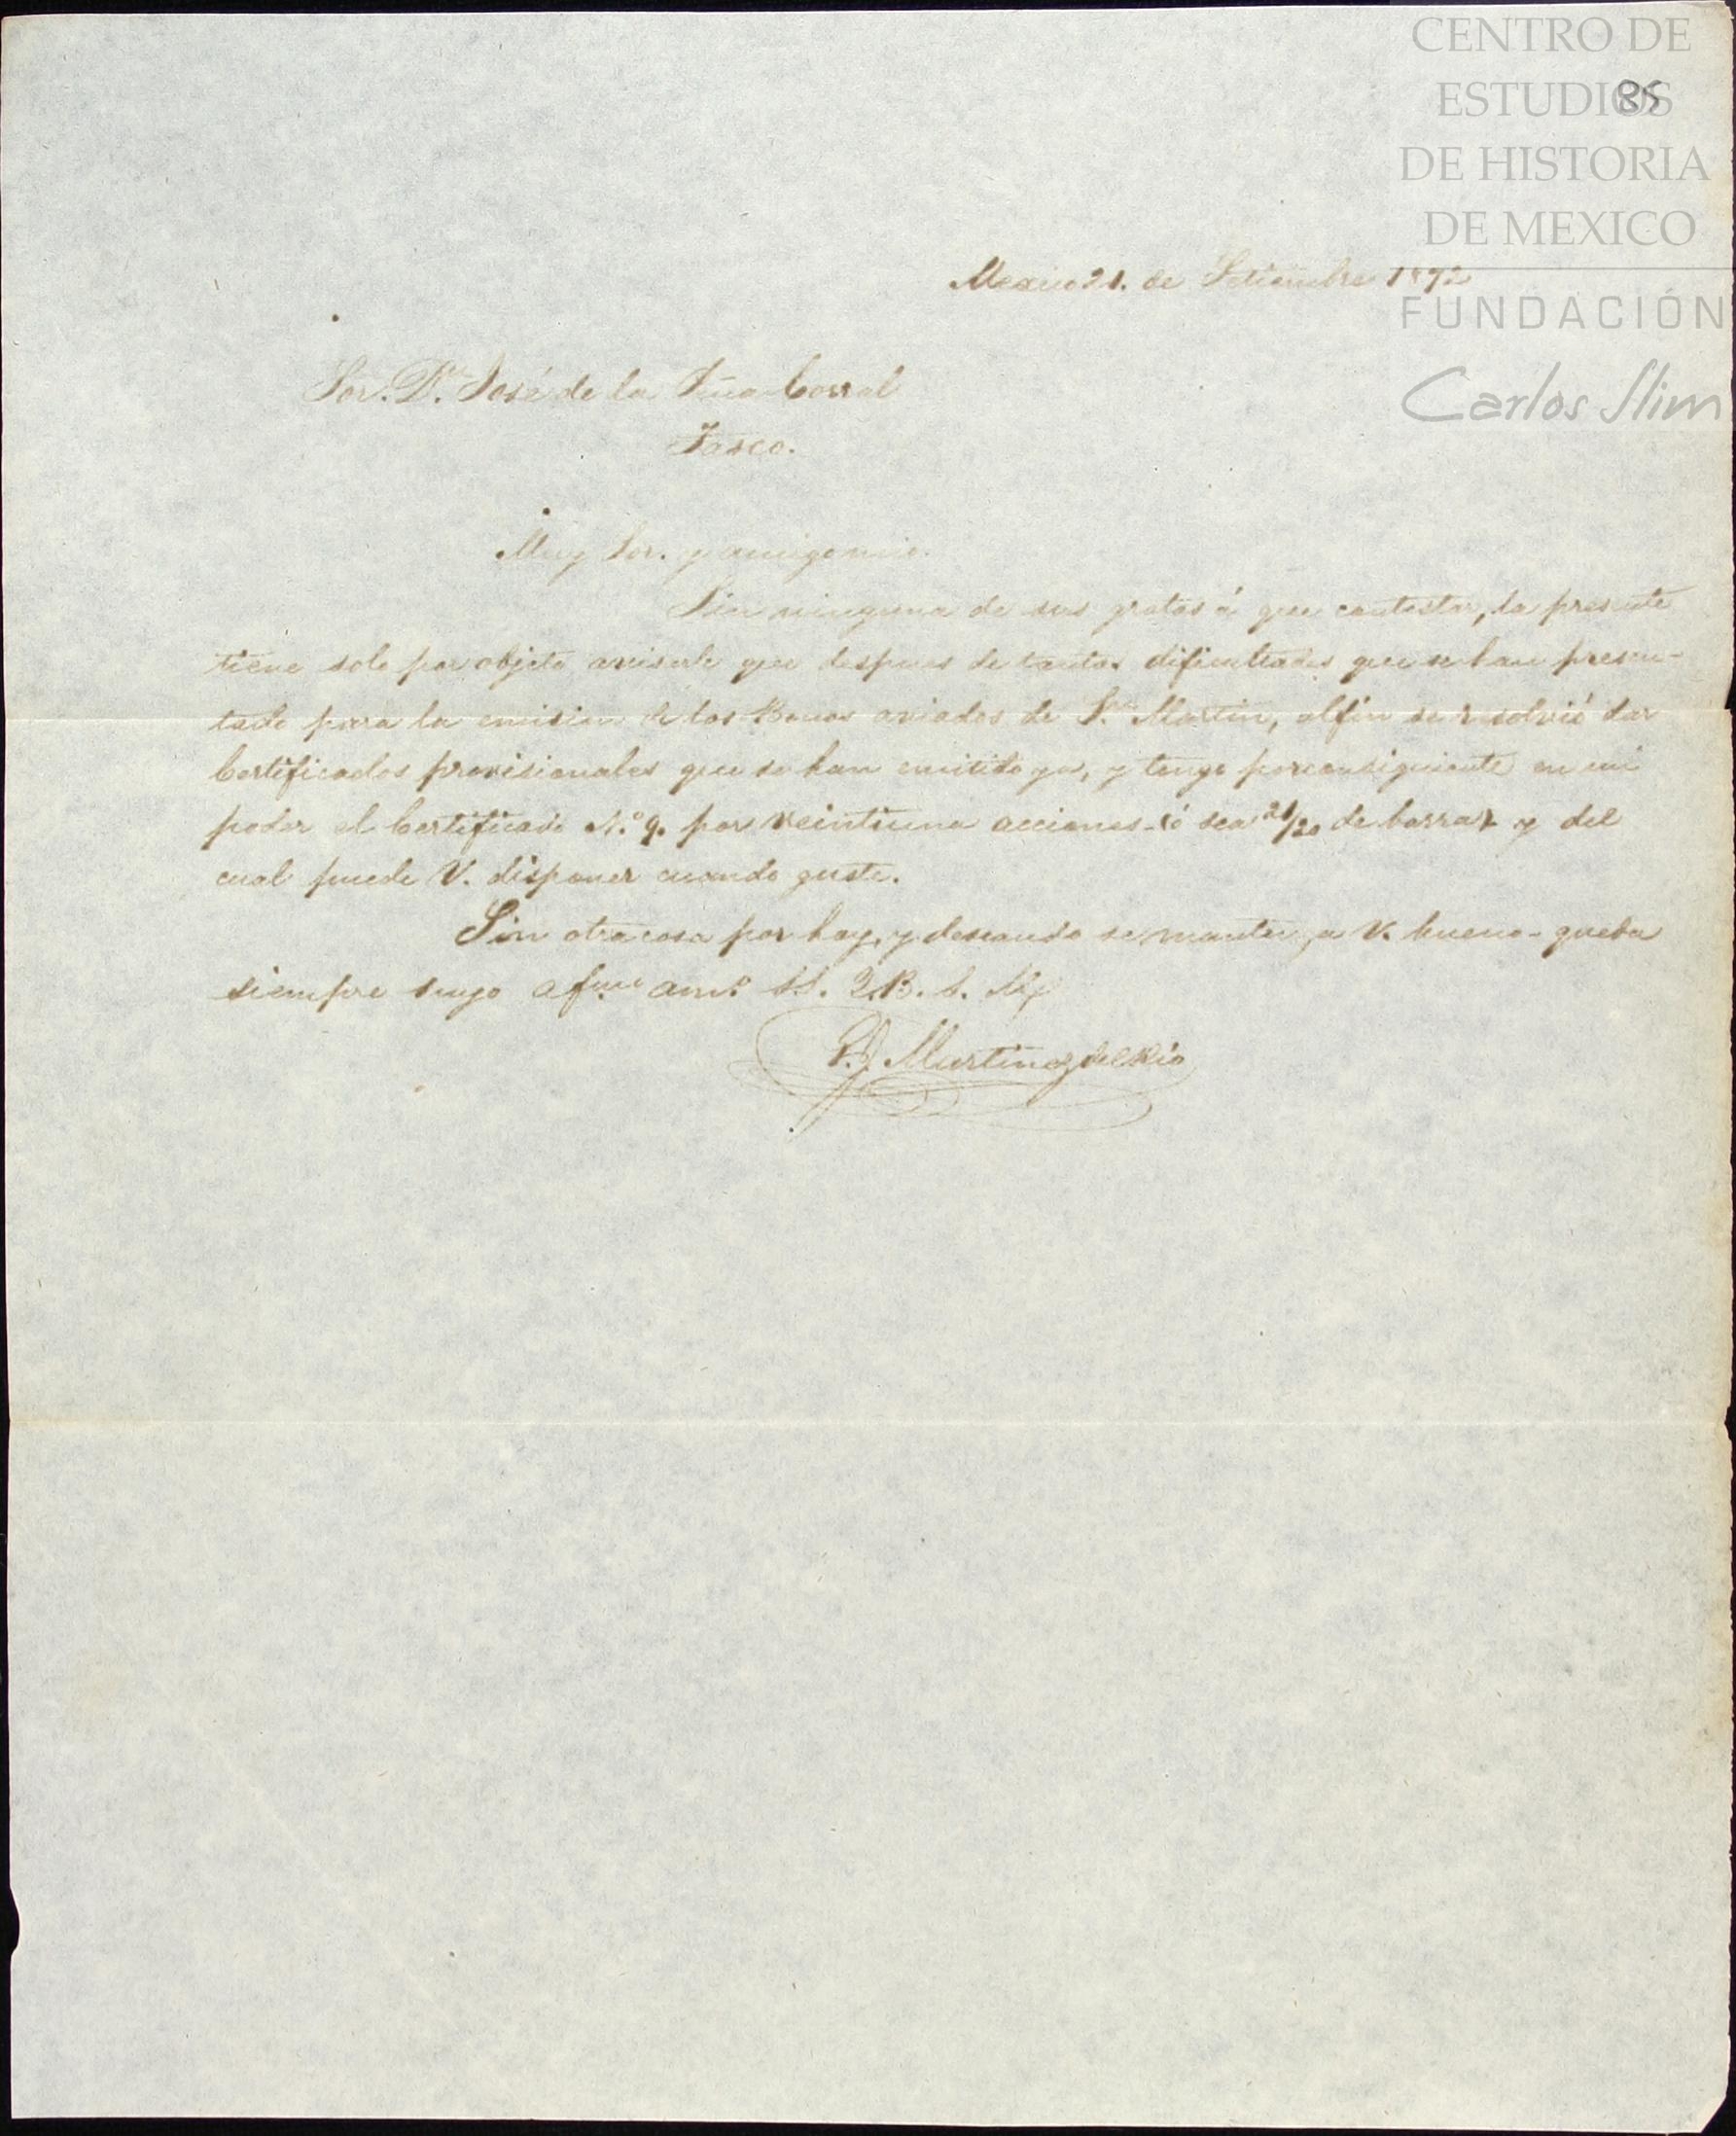 CENTRO DE
ESTUDIOS
85
DE HISTORIA
DE MEXICO
FUNDACIÓN
Carlos Slim
Mexico 21. de Setiembre 1872
Sor. Dn. José de la Corral
Tasco.
Muy Sor. y amigo mio.
Sin ninguna de sus gratas á que contestar, la presente
tiene solo por objeto avisarle que despues de tantas dificultades que se han presen-
tado para la emision de los Bonos aviados de Sn. Martin, al fin se resolvió dar
Certificados provisionales que se han emitido ya, y tengo por consiguiente en mi
poder el Certificado N.º 9. por veintiuna acciones - ó sea 21/20 de barras y del
cual puede V. disponer cuando guste.
Sin otra cosa por hoy, y deseando se mantenga V. bueno - queda
siempre suyo afmo. amo. S.S. Q.B.S.M.
P. Martinez del Rio